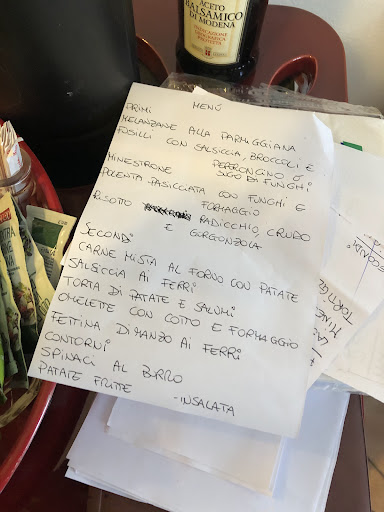 ACETO
BALSAMICO
DI MODENA
MENÙ
PRIMI
MELANZANE ALLA PARMIGGIANA
FUSILLI CON SALSICCIA, BROCCOLI E
PEPERONCINO O
SUGO DI FUNGHI
MINESTRONE
POLENTA PASICCIATA CON FUNGHI E
FORMAGGIO
RISOTTO RADICCHIO, CRUDO
E GORGONZOLA
SECONDI
CARNE MISTA AL FORNO CON PATATE
SALSICCIA AI FERRI
TORTA DI PATATE E SALUMI
OMELETTE CON COTTO E FORMAGGIO
FETTINA DI MANZO AI FERRI
CONTORNI
SPINACI AL BURRO
PATATE FRITTE - INSALATA